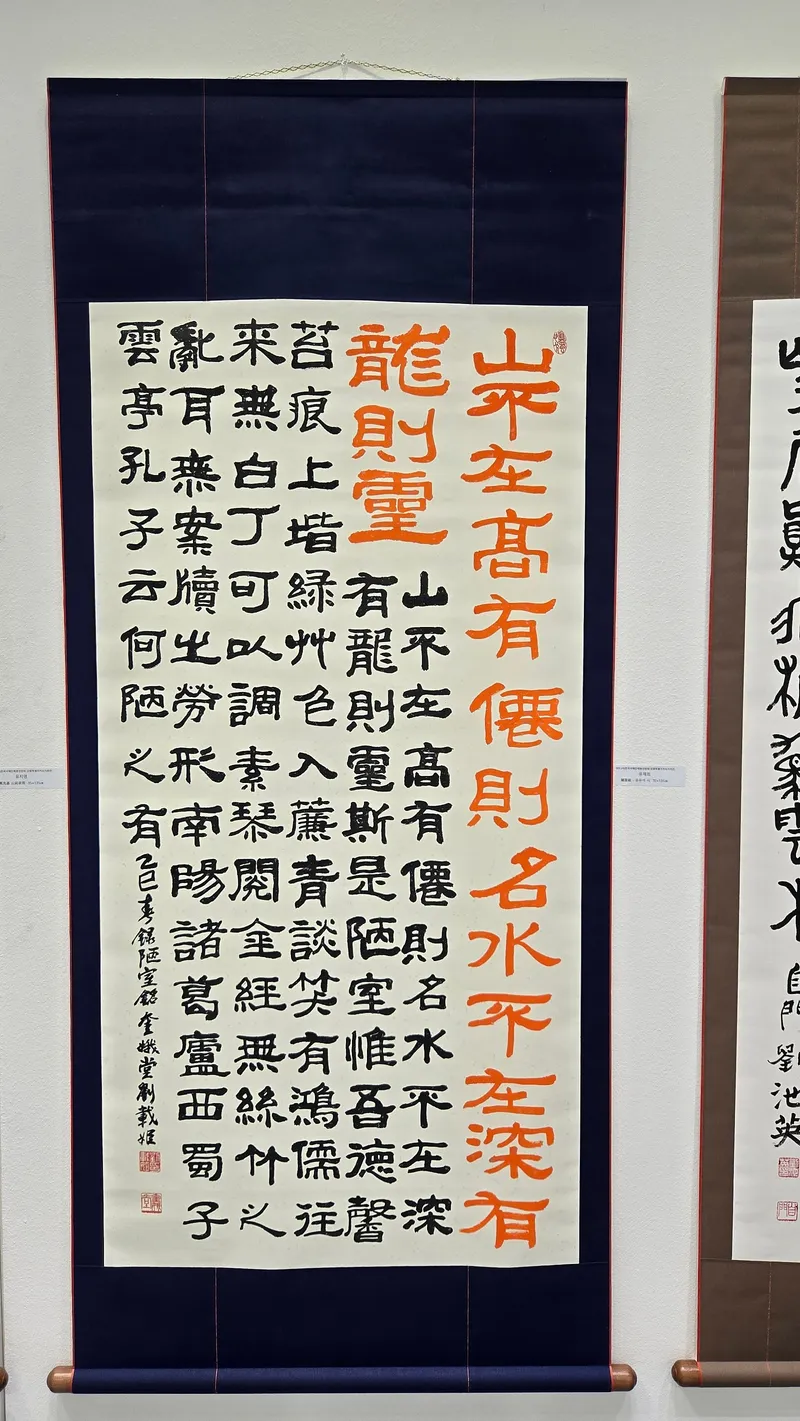 山不在高有僊則名水不在深有
龍則靈
山不在高有僊則名水不在深
有龍則靈斯是陋室惟吾德馨
苔痕上堦綠艸色入簾青談笑有鴻儒往
来無白丁可以調素琴閱金経無絲竹之
亂耳無案牘之勞形南陽諸葛廬西蜀子
雲亭孔子云何陋之有
乙巳春錄陋室銘奎娥堂劉載姬
劉池英